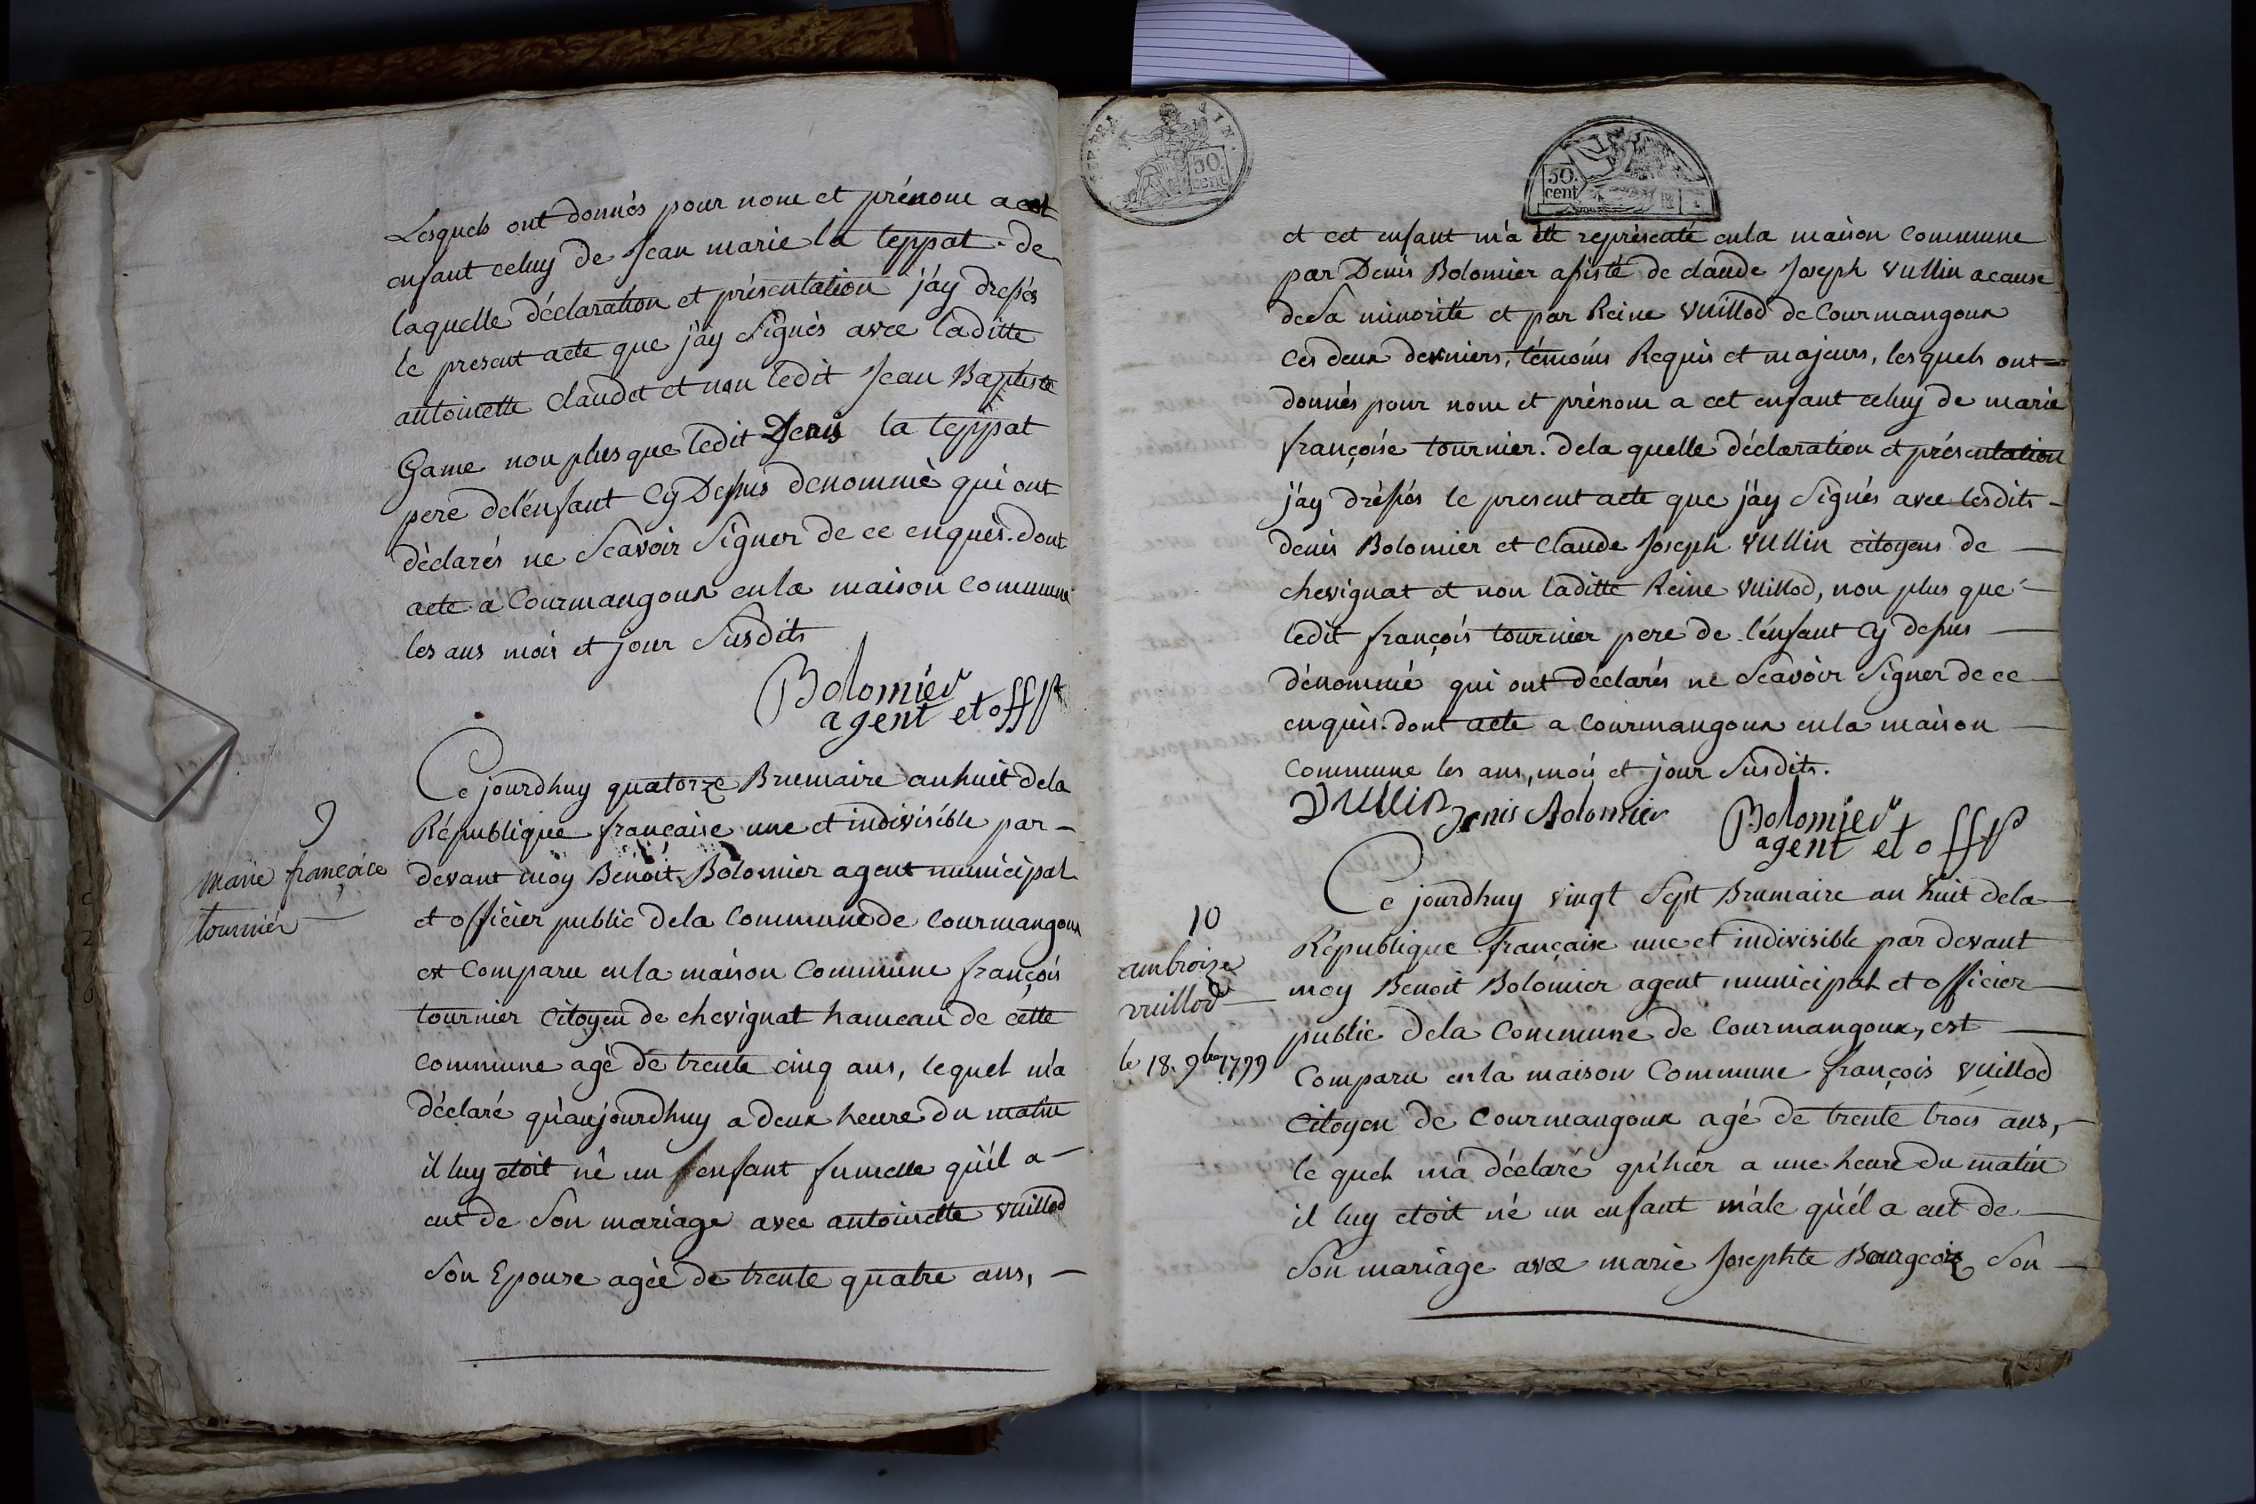 Lesquels ont donnés pour nom et prénom a cet
enfant celuy de Jean marie la teppat. de
laquelle déclaration et présentation j'ay dressés
le present acte que j'ay signés avec laditte
antoinette Claudet et non ledit Jean Baptiste
Game non plus que ledit Denis la teppat
pere del'enfant Cy Dessus denommé qui ont
déclarés ne Scavoir Signer de ce enquis. dont
acte a Courmangoux en la maison commune
les ans mois et jour Susdits
Bolomier
agent et off p
Ce jourdhuy quatorze Brumaire an huit dela
République française une et indivisible par-
devant moy Benoit Bolomier agent municipal
et officier public dela Commune de Courmangoux
est comparu en la maison Commune françois
tournier Citoyen de chevignat hameau de cette
commune agé de trente cinq ans, lequel m'a
déclaré qu'aujourdhuy a deux heure du matin
il luy etoit né un enfant fumelle qu'il a
eut de Son mariage avec antoinette vuillod
Son Epouse agée de trente quatre ans,
9
marie françoise
tournier
50.
cent
50.
cent
et cet enfant m'a été représenté en la maison Commune
par Denis Bolomier assisté de claude Joseph vullin a cause
de Sa minorité et par Reine vuillod de Courmangoux
Ces deux derniers, témoins Requis et majeurs, lesquels ont
donnés pour nom et prénom a cet enfant celuy de marie
françoise tournier. de la quelle déclaration et présentation
j'ay dréssés le present acte que j'ay Signés avec lesdits
denis Bolomier et Claude Joseph vullin citoyens de
chevignat et non laditte Reine vuillod, non plus que
ledit françois tournier pere de l'énfant Cy dessus
dénommé qui ont déclarés ne Scavoir Signer de ce
enquis. dont acte a Courmangoux en la maison
Commune les ans, mois et jour Susdits.
Vullin Denis Bolomier Bolomier
agent et off p
Ce jourdhuy vingt Sept Brumaire an huit dela
République française une et indivisible par devant
moy Benoit Bolomier agent municipal et officier
public dela Commune de Courmangoux, est
Comparu en la maison Commune françois vuillod
Citoyen de Courmangoux agé de trente trois ans,
le quel m'a déclaré qu'hier a une heure du matin
il luy etoit né un enfant mâle qu'il a eut de
Son mariage avec marie Josephte Bourgeois Son
10
ambroize
vuillod
le 18. 9bre 1799